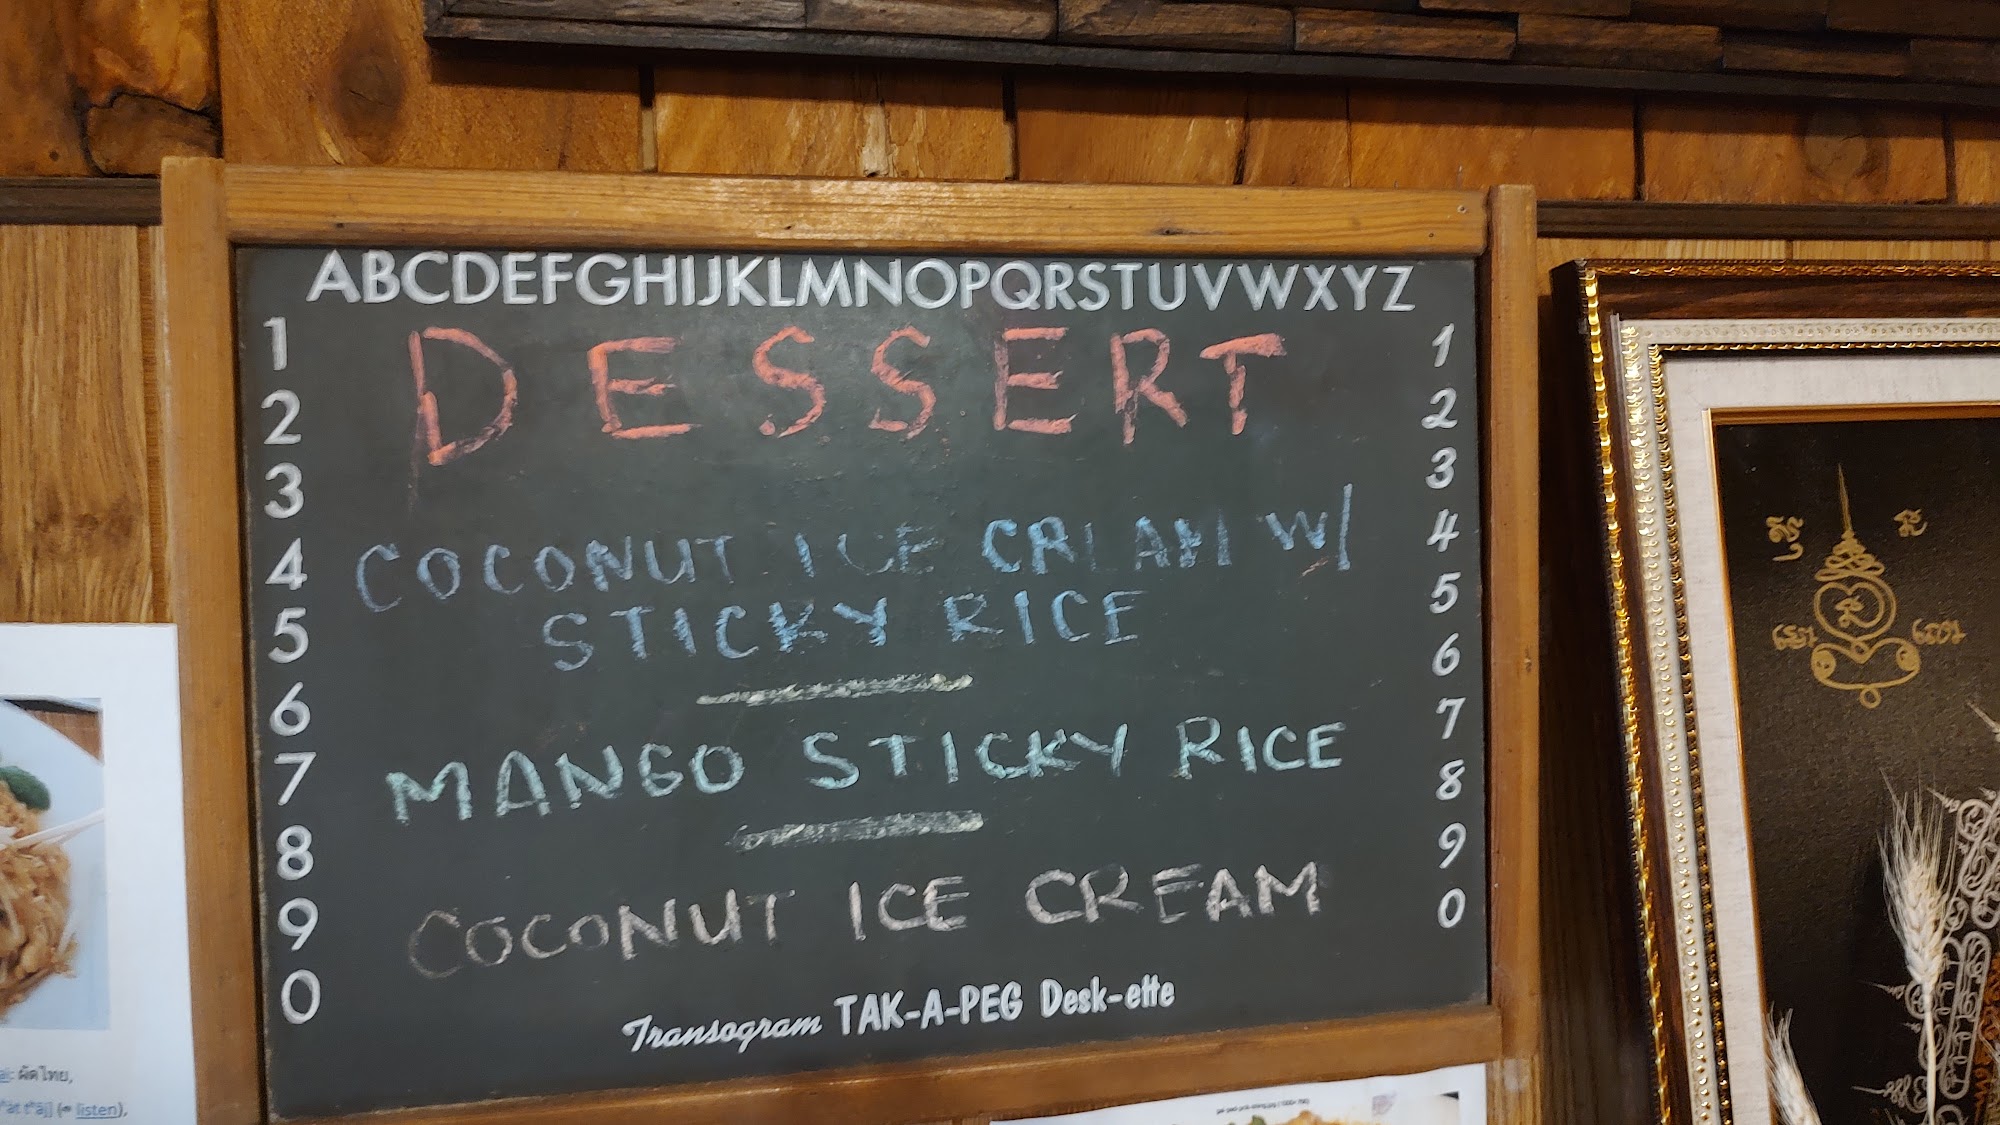 ABCDEFGHIJKLMNOPQRSTUVWXYZ
1 1
2 2
3 3
4 4
5 5
6 6
7 7
8 8
9 9
0 0
DESSERT
COCONUT ICE CREAM W/
STICKY RICE
MANGO STICKY RICE
COCONUT ICE CREAM
Transogram TAK-A-PEG Desk-ette
ผัดไทย,
listen),